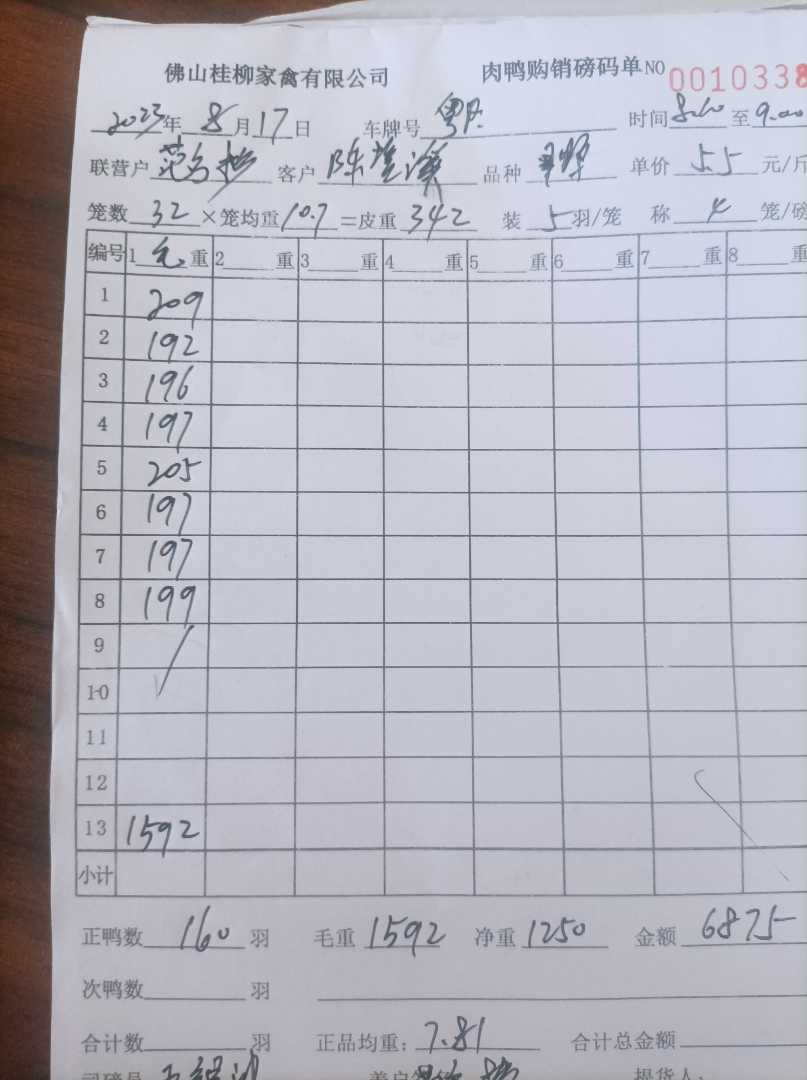 佛山桂柳家禽有限公司 肉鸭购销磅码单NO 0010338
2023年 8月17日 车牌号 粤 时间 8.10 至 9.00
联营户 客户 陈 品种 单价 5.5 元/斤
笼数 32 ×笼均重 10.7 =皮重 342 装 5 羽/笼 称 4 笼/磅
编号 1 毛 重 2 重 3 重 4 重 5 重 6 重 7 重 8 重
1 209
2 192
3 196
4 197
5 205
6 197
7 197
8 199
9
10
11
12
13 1592
小计
正鸭数 160 羽 毛重 1592 净重 1250 金额 6875
次鸭数 羽
合计数 羽 正品均重: 7.81 合计总金额
司磅员 提货人: